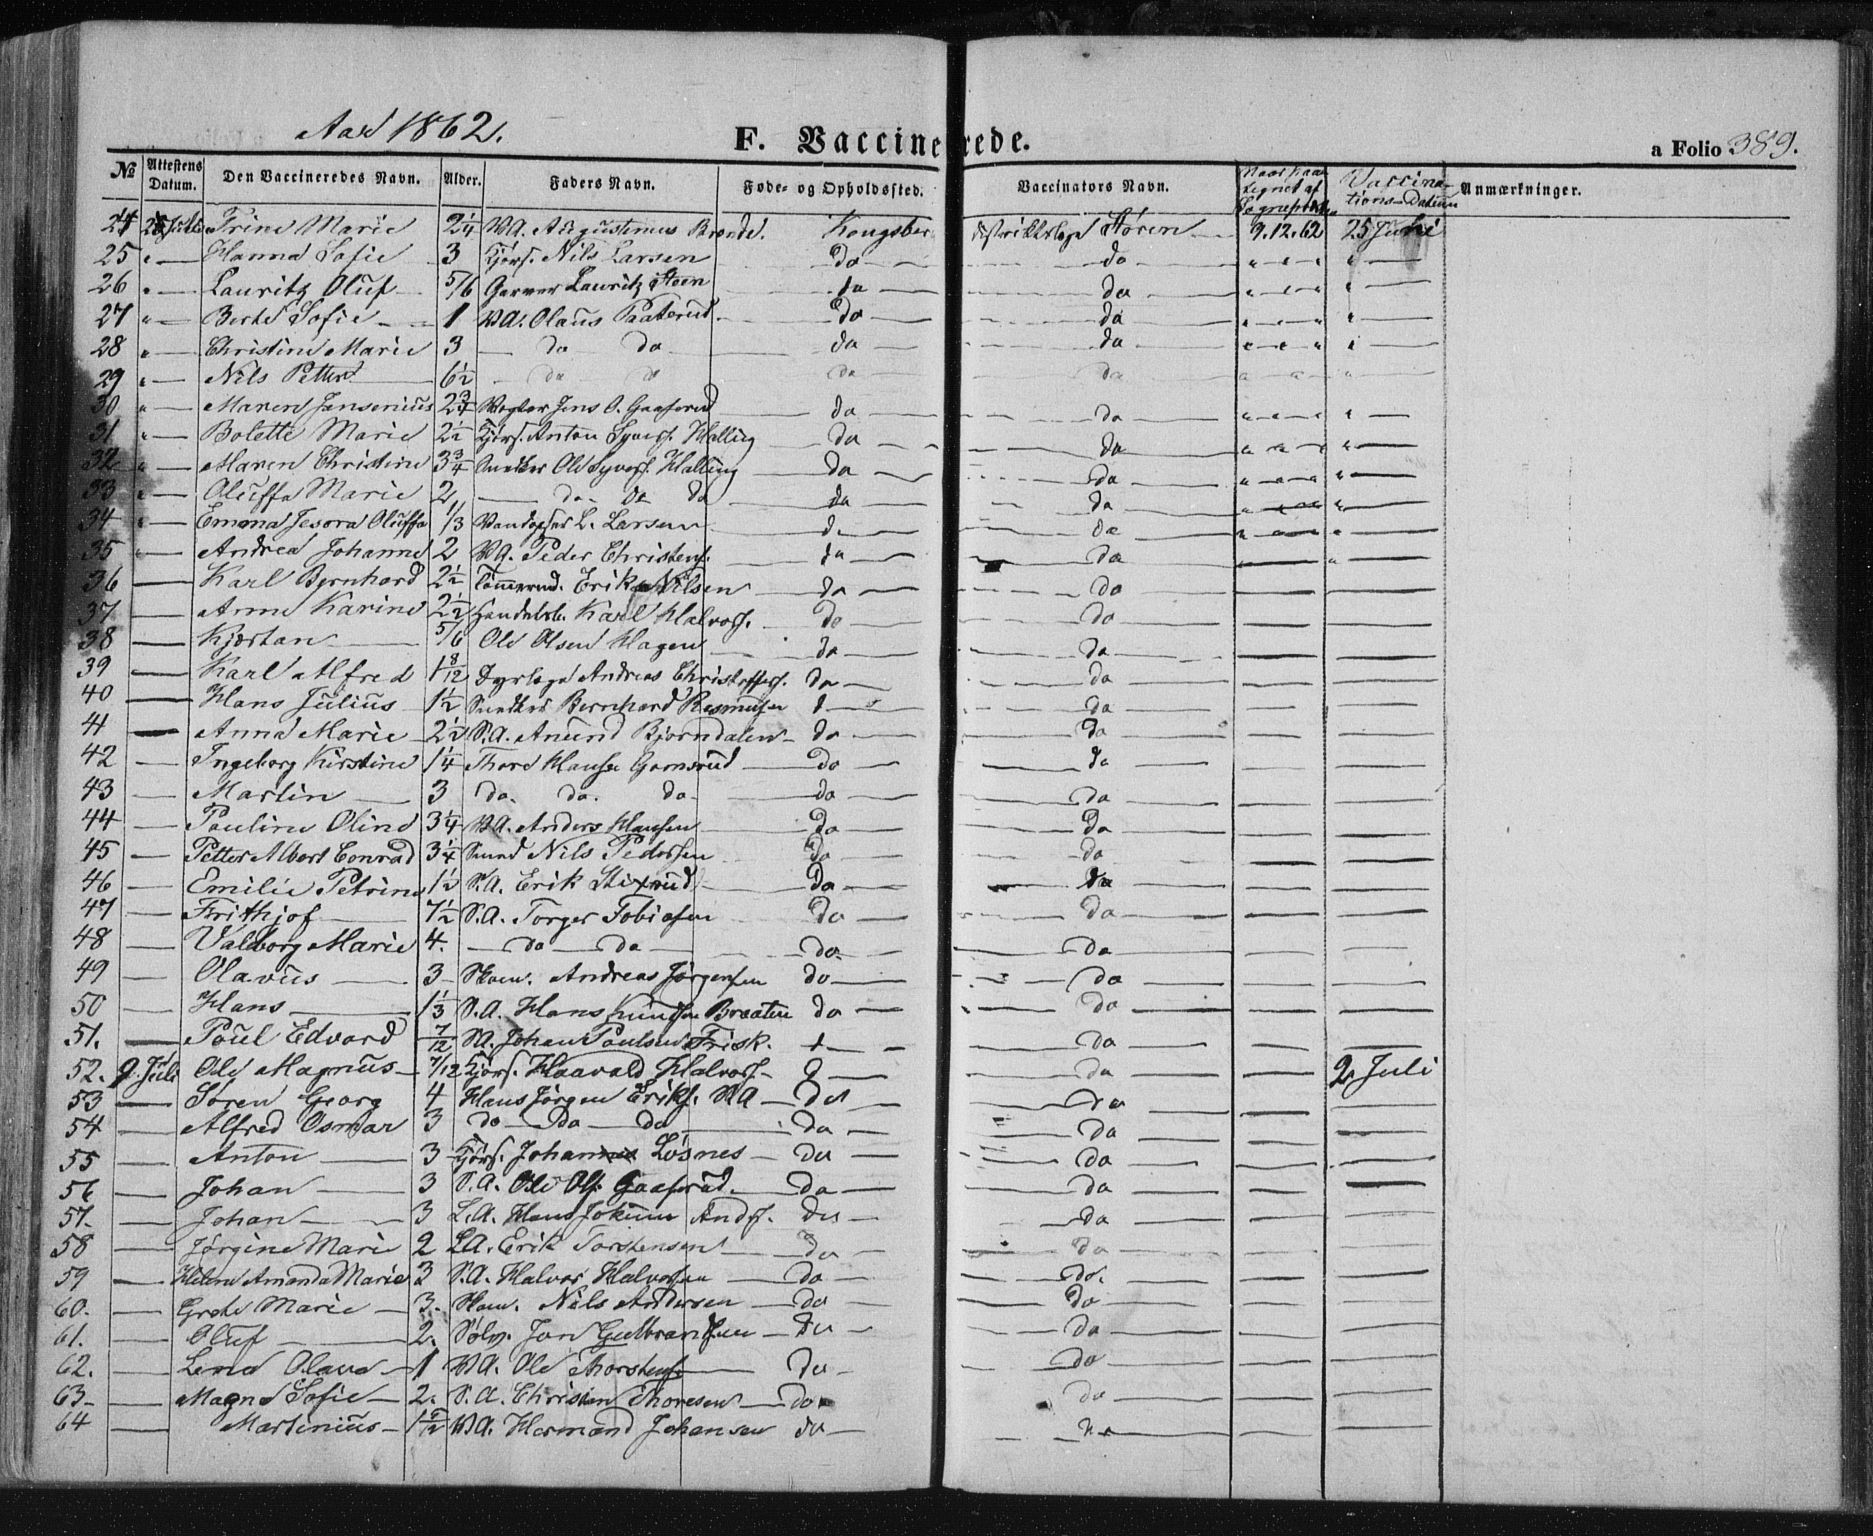 Aar 1862.
F. Vaccinerede.
a Folio 389.
№ Attestens Datum. Den Vaccineredes Navn. Alder. Faders Navn. Føde- og Opholdssted. Vaccinators Navn. Vaccinations-Datum Anmærkninger.
24 25 Juli Trine Marie 2 1/4 BA. Augustinus Brende. Kongsber Distriktslæge Støren 9.12.62 25 Juli
25 " — Hanna Sofie 3 Kjørs. Nils Larsen do do " " " " —
26 " — Lauritz Oluf 5/6 Garver Lauritz Steen da do " " " "
27 " — Berthe Sofie 1 BA. Olaus Paaterud. do do " " " "
28 " — Christine Marie 3 — do do do do " " " " —
29 " — Nils Petter 6 1/2 — do do do do " " " " —
30 " — Maren Jensenius 2 3/4 Vogter Jens O. Gaaserud do do " " " " —
31 " — Bolette Marie 2 1/2 Kjørs. Anton Syvers. Halling do do " " " " —
32 " — Maren Christine 3 3/4 Snedker Ole Syvers. Halling do do " " " " —
33 " — Oluffa Marie 2 — do do do do do " " " "
34 " — Emma Jesora Oluffa 1/3 L. Larsen do do " — "
35 " — Andrea Johanne 2 BA. Peder Christens. da do " — " —
36 — Karl Bernhard 2 1/2 Tømmermd. Erik Nilsen do do — —
37 — Anne Karine 2 1/2 Handelsb. Karl Halvors. do do — —
38 — Kjøstan 5/6 Ole Olsen Hagen do do — —
39 — Karl Alfred 1 8/12 Dyrlæge Andreas Christoffers. do do — —
40 — Hans Julius 1 1/2 Snedker Bernhard Rasmussen d do — —
41 — Anna Marie 2 1/2 S.A. Anund Bjørndalen do do — —
42 — Ingeborg Kirstine 1 1/4 Thore Hansen Gomsrud do do — —
43 — Martin 3 do. do. do. do do — —
44 — Pauline Oline 3 1/4 BA. Anders Hansen do do — —
45 — Petter Albert Conrad 3 1/4 Smed Nils Pedersen do do — —
46 — Emilie Petrine 1 1/2 S.A. Erik Stixrud do do — —
47 — Frithjof 7 1/2 S.A. Torger Tobiasen do do — —
48 — Valborg Marie 4. — do — do — do do — —
49 — Olavus 3 Skom. Andreas Jørgensen do do — —
50 — Hans 1 1/3 S.A. Hans Knudsen Braaten do do — —
51. — Poul Edvard 7/12 SA. Johan Poulsen Frisk. do — —
52. 9 Juli Ole Magnus 7/12 Kjørs. Haavald Halvors. do — 2 Juli
53 — Søren Georg 4 Hans Jørgen Eriks. BA do do — —
54 — Alfred Osmar 3 do — do — do do do — —
55 — Anton 3 Kjørs. Johannes Løsnes do do — —
56 — Johan 3 S.A. Ole Ols. Gaaserud. do do — —
57. — Johan 3 L.A. Hans Jokum Ands. do do — —
58 — Jørgine Marie 2 LA. Erik Torstensen do do — —
59 — Helene Amanda Marie 3 S.A. Halvor Halvorsen do do. — —
60. — Grethe Marie 3. Skom. Nils Andersen do do — —
61. — Oluf 2. Sølv. Jon Gulbrandsen do do — —
62. — Lene Olava 1 BA. Ole Thorstens. do do — —
63 — Magna Sofie 2. S.A. Christen Thoresen do do — —
64 Martinius 1 BA. Hermand Johansen do — —